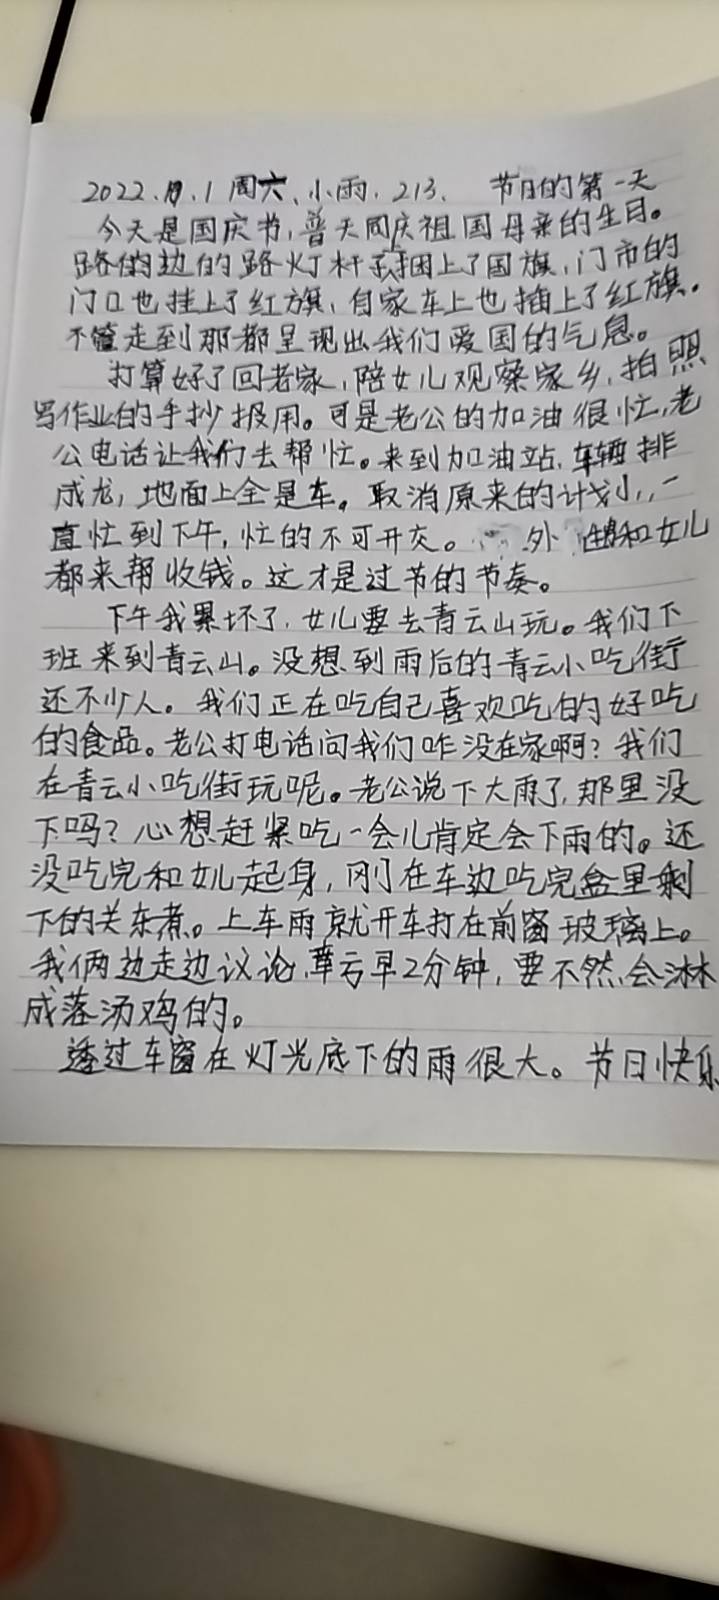 2022.10.1周六、小雨.213. 节日的第一天
今天是国庆节,普天同庆祖国母亲的生日。
路的边的路灯杆子上捆上了国旗,门市的
门口也挂上了红旗、自家车上也插上了红旗。
不管走到那都呈现出我们爱国的气息。
打算好了回老家,陪女儿观察家乡,拍照
写作业的手抄报用。可是老公的加油很忙,老
公电话让我们去帮忙。来到加油站,车辆排
成龙,地面上全是车。取消原来的计划,一
直忙到下午,忙的不可开交。 外甥和女儿
都来帮收钱。这才是过节的节奏。
下午我累坏了,女儿要去青云山玩。我们下
班来到青云山。没想到雨后的青云小吃街
还不少人。我们正在吃自己喜欢吃的好吃
的食品。老公打电话问我们咋没在家啊?我们
在青云小吃街玩呢。老公说下大雨了,那里没
下吗?心想赶紧吃一会儿肯定会下雨的。还
没吃完和女儿起身,刚在车边吃完盒里剩
下的关东煮。上车雨就开车打在前窗玻璃上。
我俩边走边议论,幸亏早2分钟,要不然会淋
成落汤鸡的。
透过车窗在灯光底下的雨很大。节日快乐